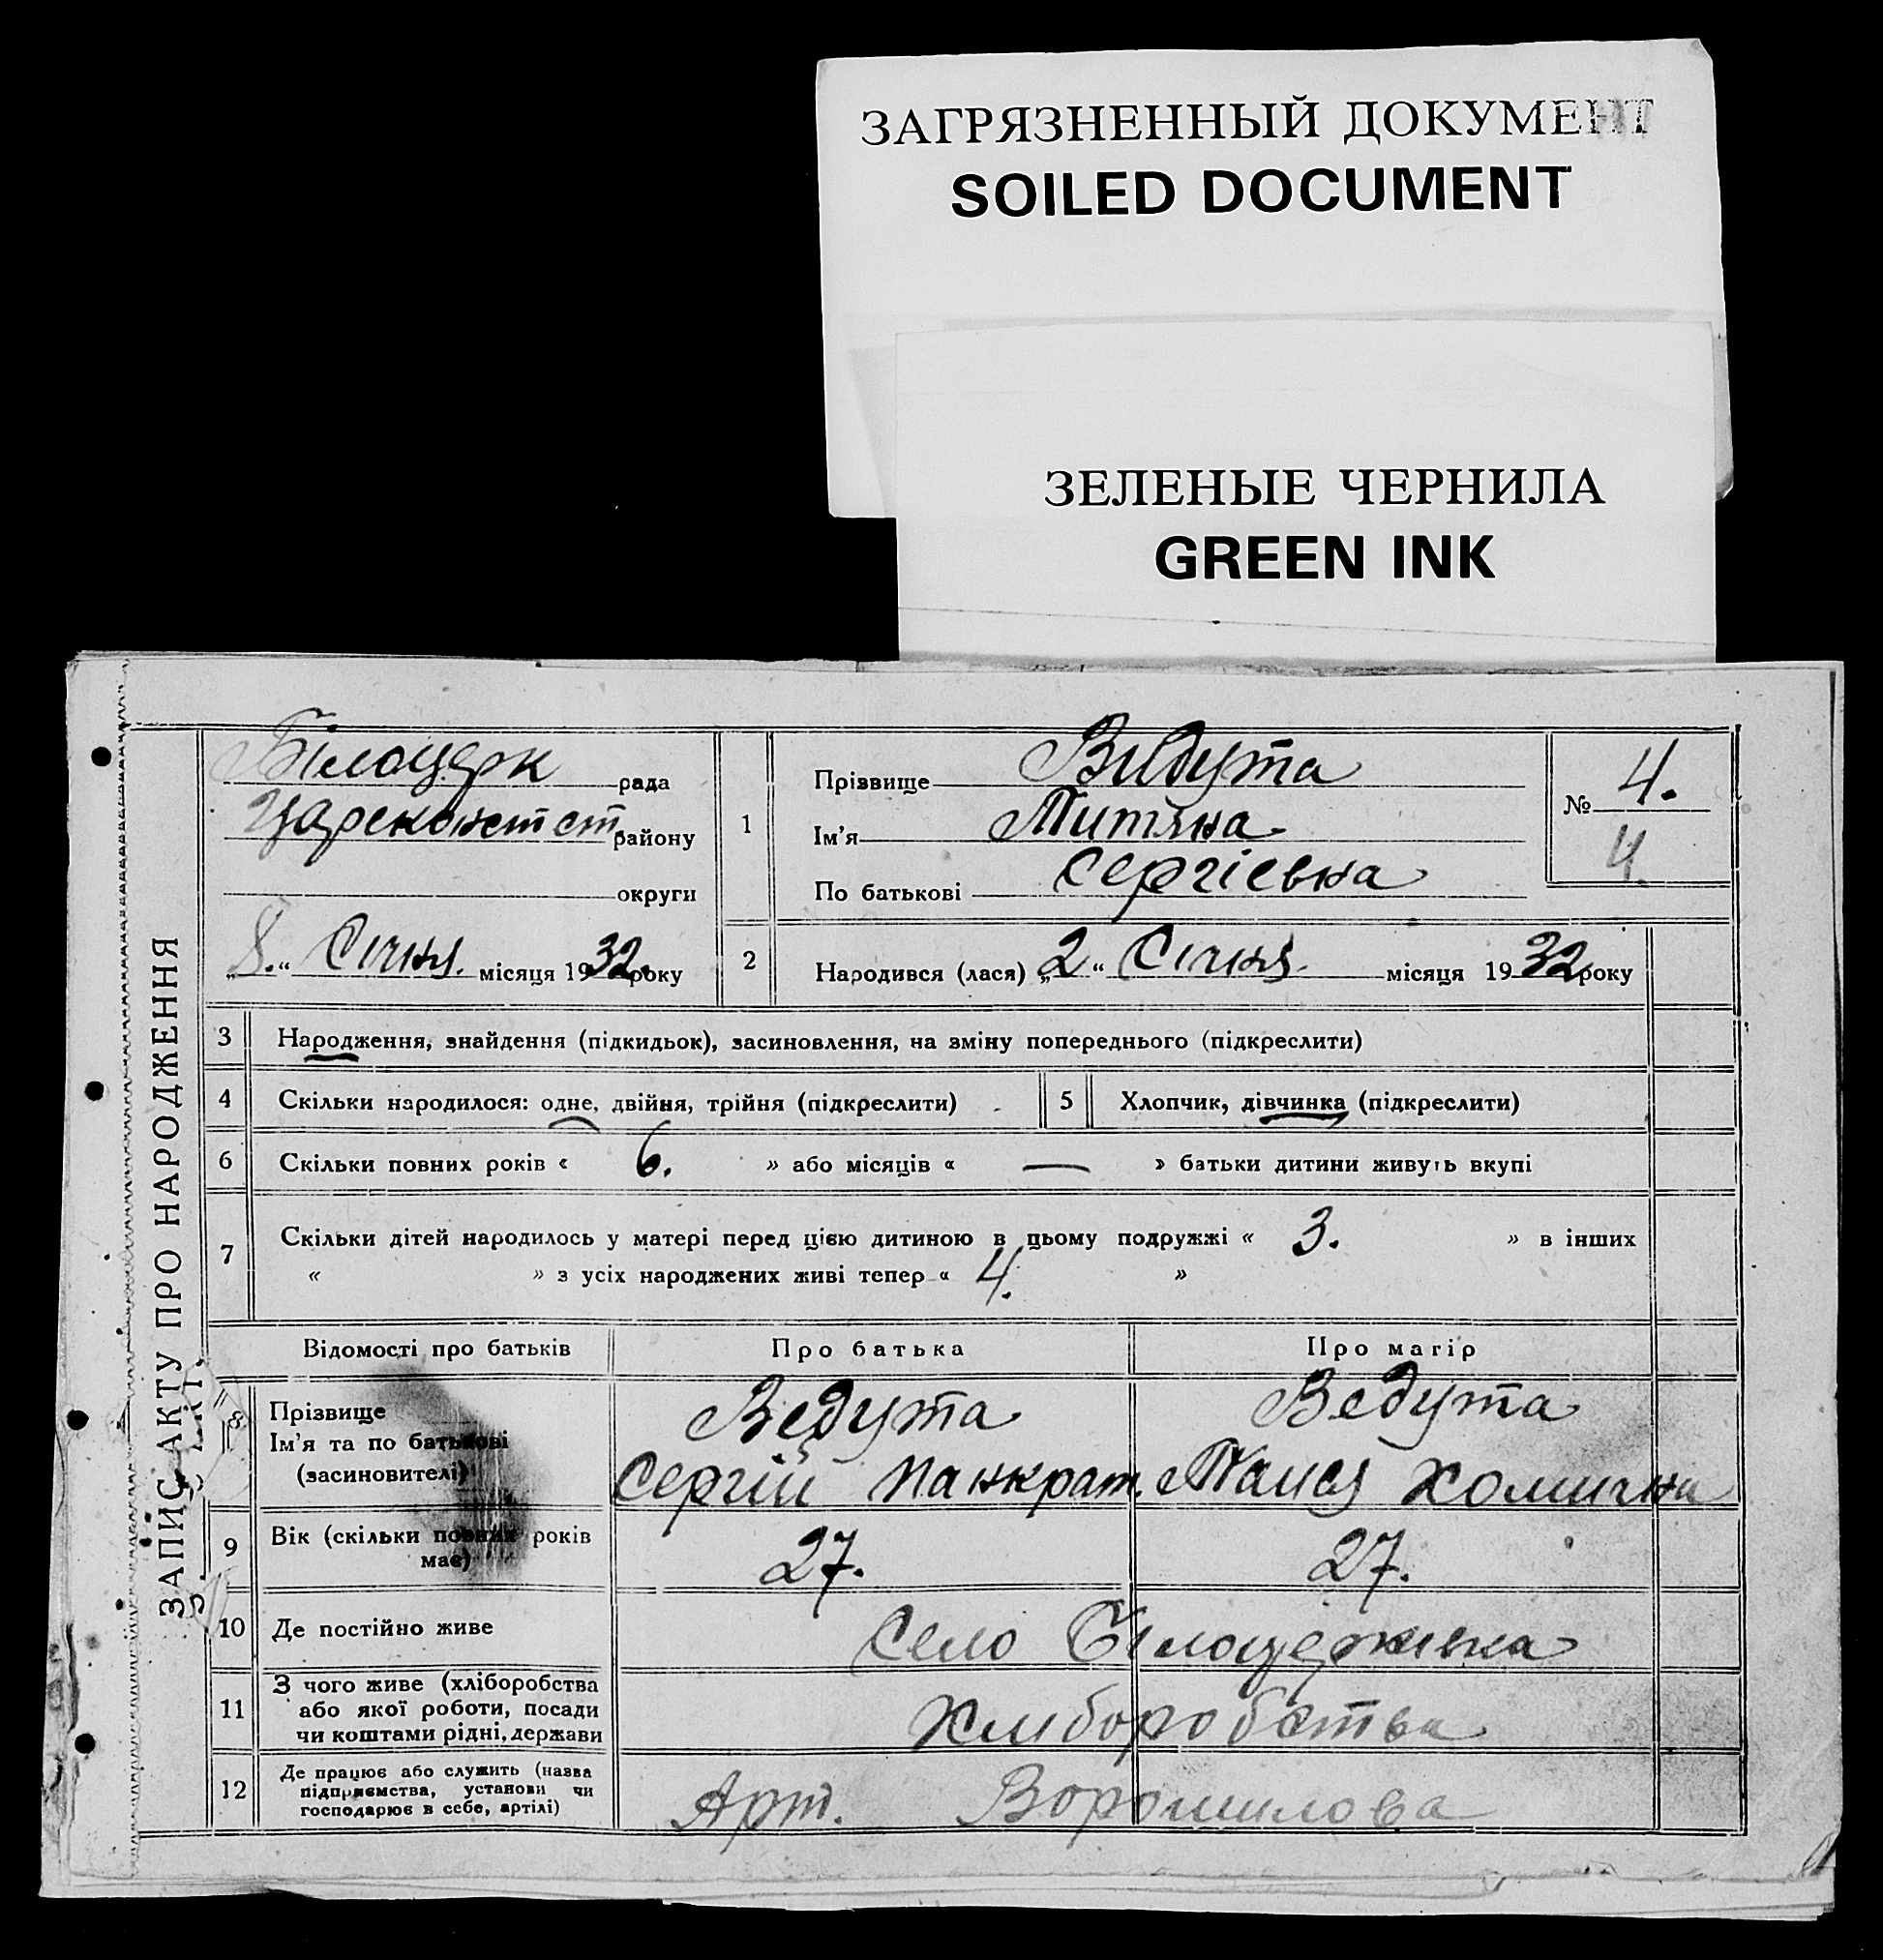 ЗАГРЯЗНЕННЫЙ ДОКУМЕНТ
SOILED DOCUMENT
ЗЕЛЕНЫЕ ЧЕРНИЛА
GREEN INK
ЗАПИС АКТУ ПРО НАРОДЖЕННЯ
Білоцерк рада
Цареконст ст району
округи
„8.“ Січня. місяця 1932. року
1
Прізвище Ведута
Ім'я Титяна
По батькові Сергієвна
№ 4.
4.
2 Народився (лася) „2“ Січня. місяця 1932 року
3 Народження, знайдення (підкидьок), засиновлення, на зміну попереднього (підкреслити)
4 Скільки народилося: одне, двійня, трійня (підкреслити)
5 Хлопчик, дівчинка (підкреслити)
6 Скільки повних років « 6. » або місяців « — » батьки дитини живуть вкупі
7 Скільки дітей народилось у матері перед цією дитиною в цьому подружжі « 3. » в інших
« » з усіх народжених живі тепер « 4. »
Відомості про батьків Про батька Про матір
8 Прізвище Ведута Ведута
Ім'я та по батькові
(засиновителі) Сергій Панкрат. Таися Хомична
9 Вік (скільки повних років 27. 27.
має)
10 Де постійно живе Село Білоцерківка
11 З чого живе (хліборобства
або якої роботи, посади Хлиборобства
чи коштами рідні, держави
12 Де працює або служить (назва
підприємства, установи чи Арт. Ворошилова
господарює в себе, артілі)